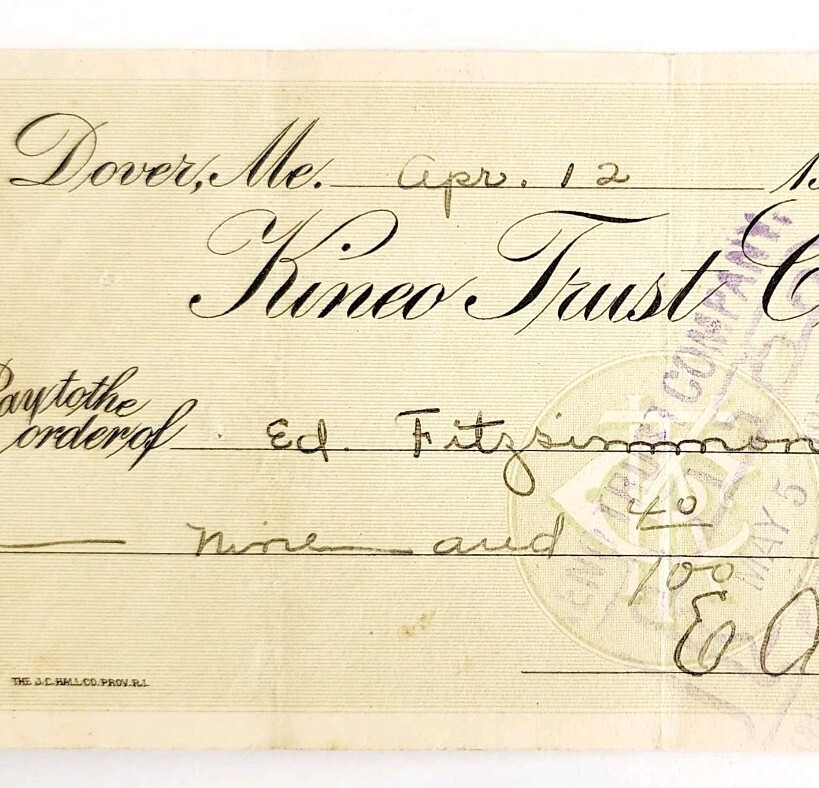 Dover, Me. Apr. 12 1
Kineo Trust C
Pay to the
order of Ed. Fitzsimmon
nine and 40/100
E
THE J.C. HALL CO. PROV. R.I.
TRUST COMPANY.
MAY 5